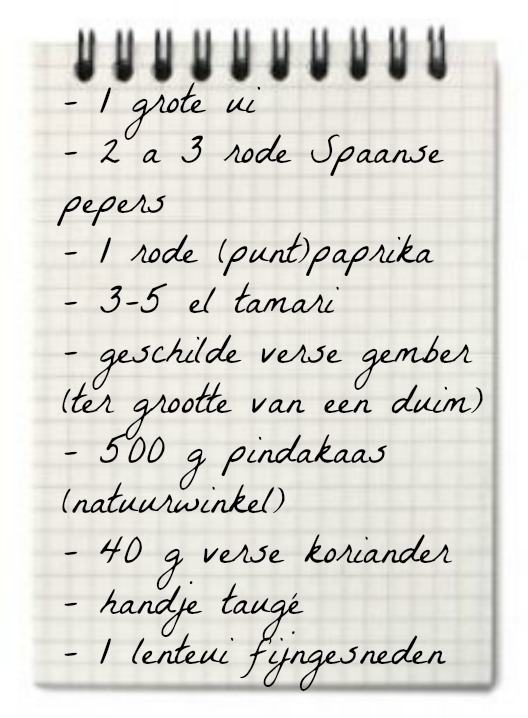 - 1 grote ui
- 2 a 3 rode Spaanse
pepers
- 1 rode (punt)paprika
- 3-5 el tamari
- geschilde verse gember
(ter grootte van een duim)
- 500 g pindakaas
(natuurwinkel)
- 40 g verse koriander
- handje taugé
- 1 lenteui fijngesneden